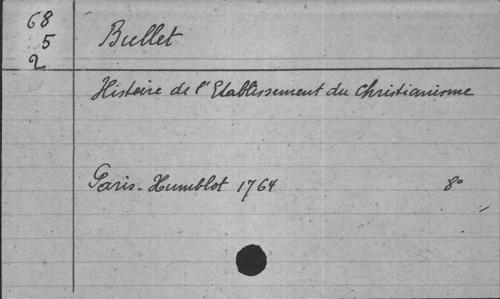 68
5
2
Bullet
Histoire de l'Etablissement du Christianisme
Paris - Humblot 1764 8°